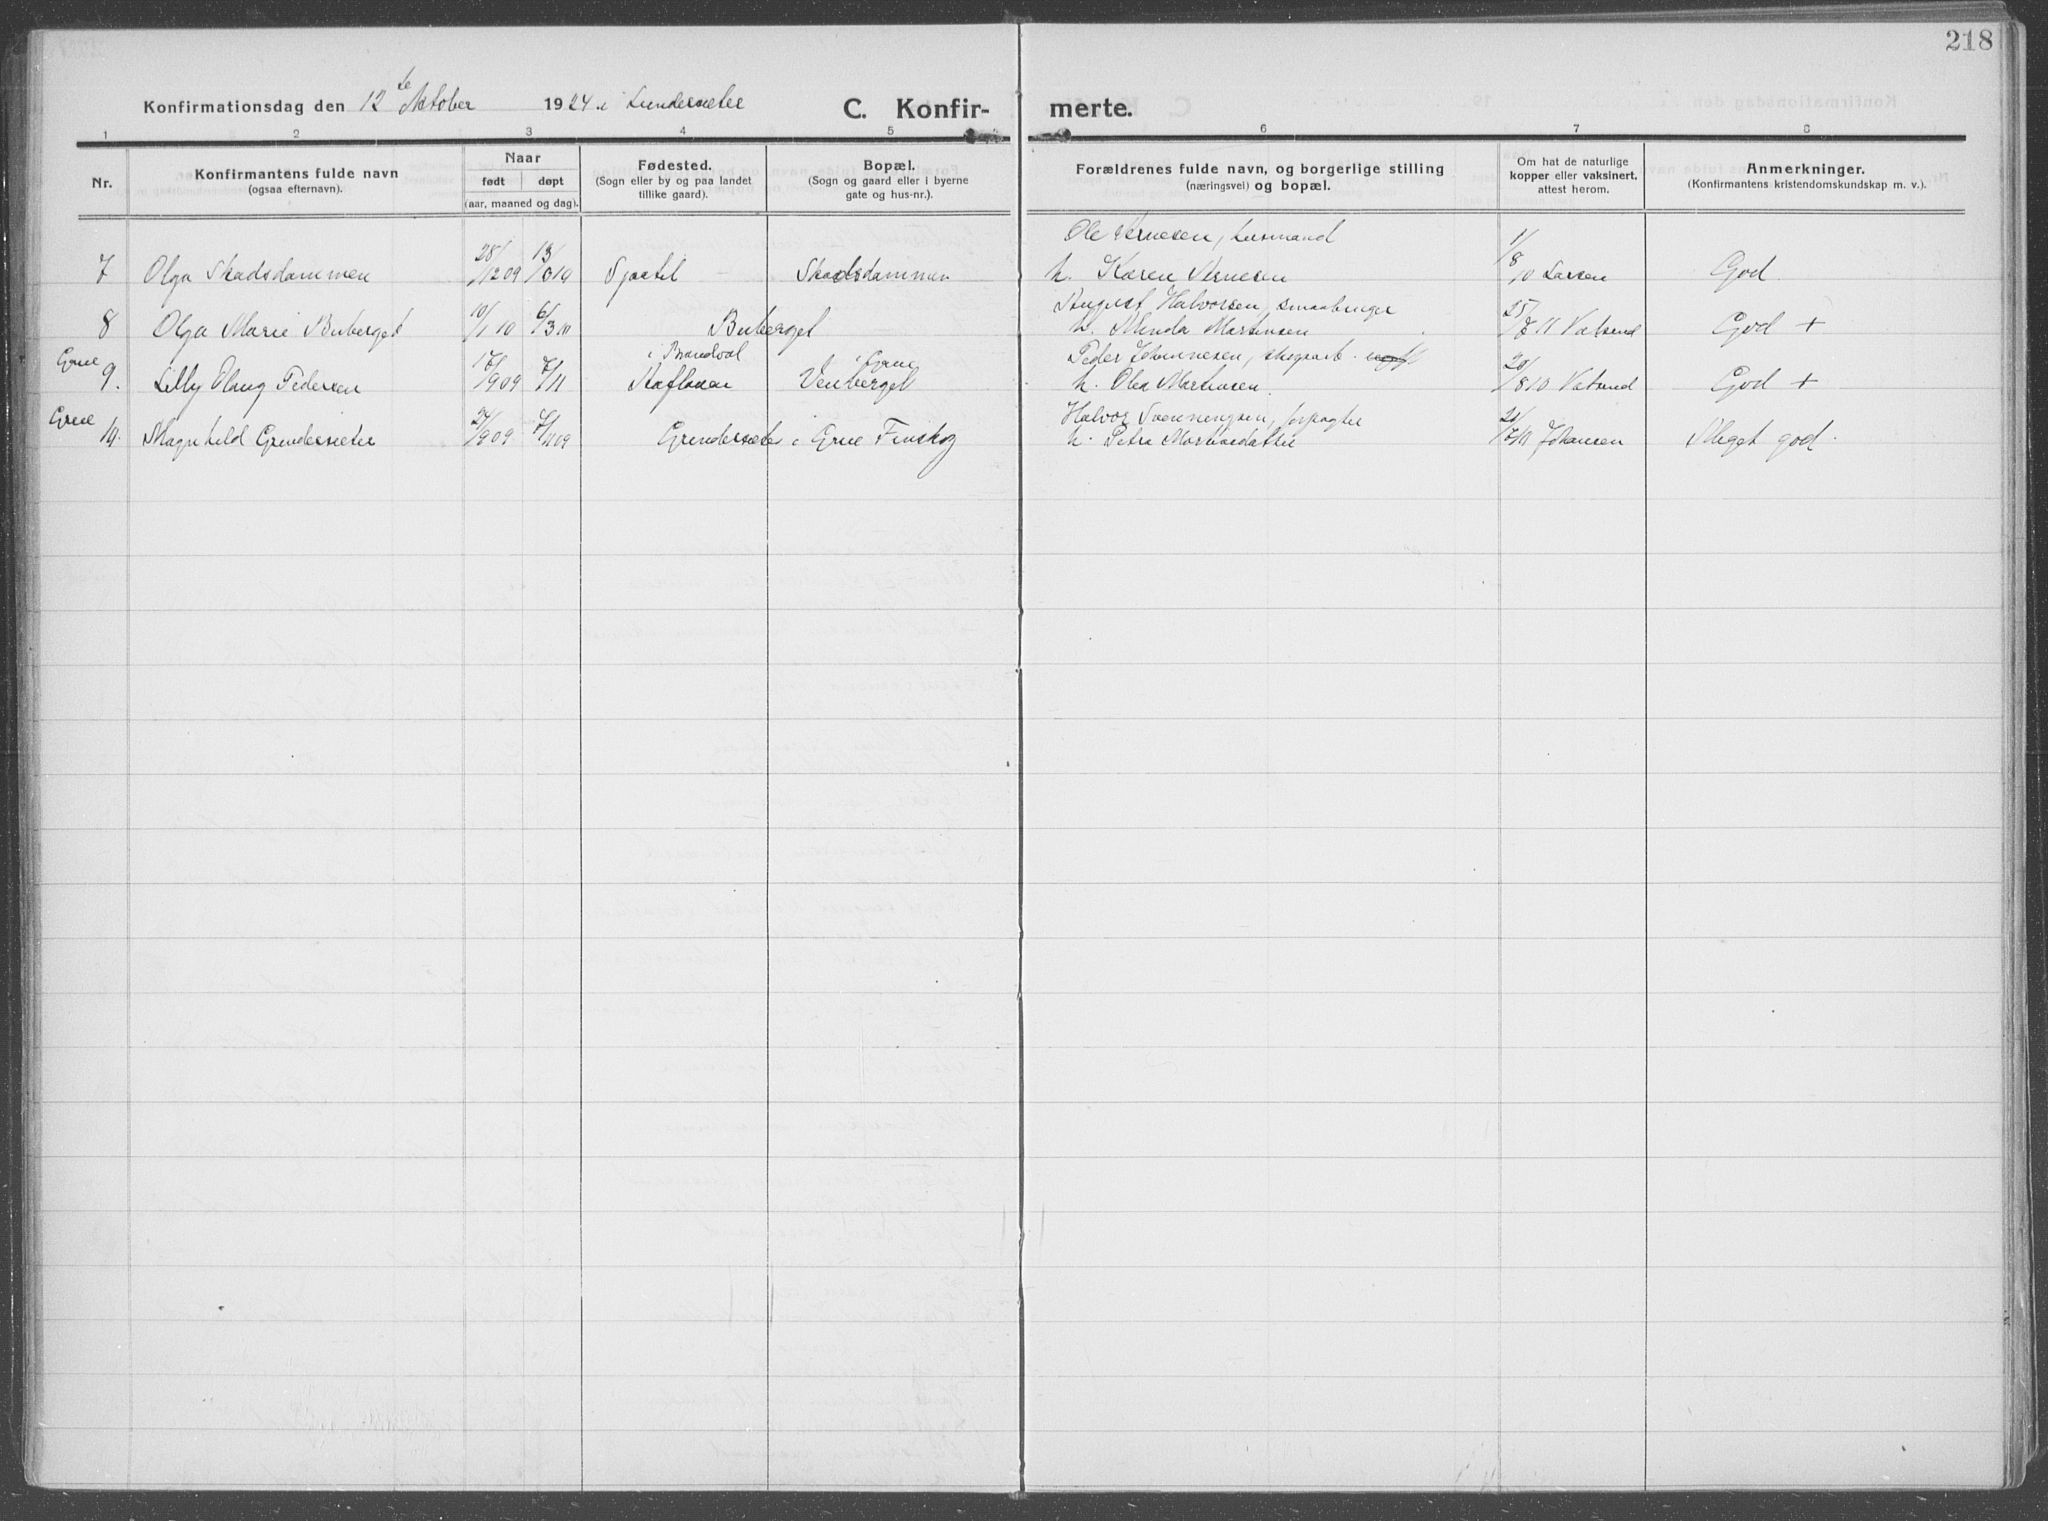 218
Konfirmationsdag den 12te Oktober 1924 i Lundersæter
C. Konfirmerte.
1 2 3 4 5 6 7 8
Nr.
Konfirmantens fulde navn
(ogsaa efternavn).
Naar
født døpt
(aar, maaned og dag).
Fødested.
(Sogn eller by og paa landet
tillike gaard).
Bopæl.
(Sogn og gaard eller i byerne
gate og hus-nr.).
Forældrenes fulde navn, og borgerlige stilling
(næringsvei) og bopæl.
Om hat de naturlige
kopper eller vaksinert,
attest herom.
Anmerkninger.
(Konfirmantens kristendomskundskap m. v.).
Ole Arnesen, husmand
7 Olga Skadsdammen 28/12 09 Skadsdammen h. Karen Arnesen 1/8 10 Larsen God
August Halvorsen, smaabruger
8 Olga Marie Buberget 10/1 10 6/3 10 Buberget h. Minda Martinsen 25/8 11 Vatund God +
Grue i Brandval i Grue Peder Johannesen, skogsarb.
9. Lilly Olaug Pedersen 17/9 09 7/11 Venberget h. Olea Martinsen 20/8 10 Vatund God +
Grue Halvor Svenningsen, forpagter
14. Magnhild Grundersæter 27/9 09 7/11 09 Grundersæter i Grue Finskog h. Petra Martinsdatter Johansen Meget god.